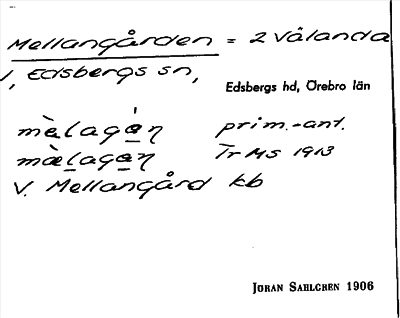 Mellangården = 2 Vålanda
1, Edsbergs sn,
Edsbergs hd, Örebro län
mè̱lagá̱ŋ prim.-ant.
mæ̱̀lagə̱ŋ Tr MS 1913
V. Mellangård kb
JÖRAN SAHLGREN 1906